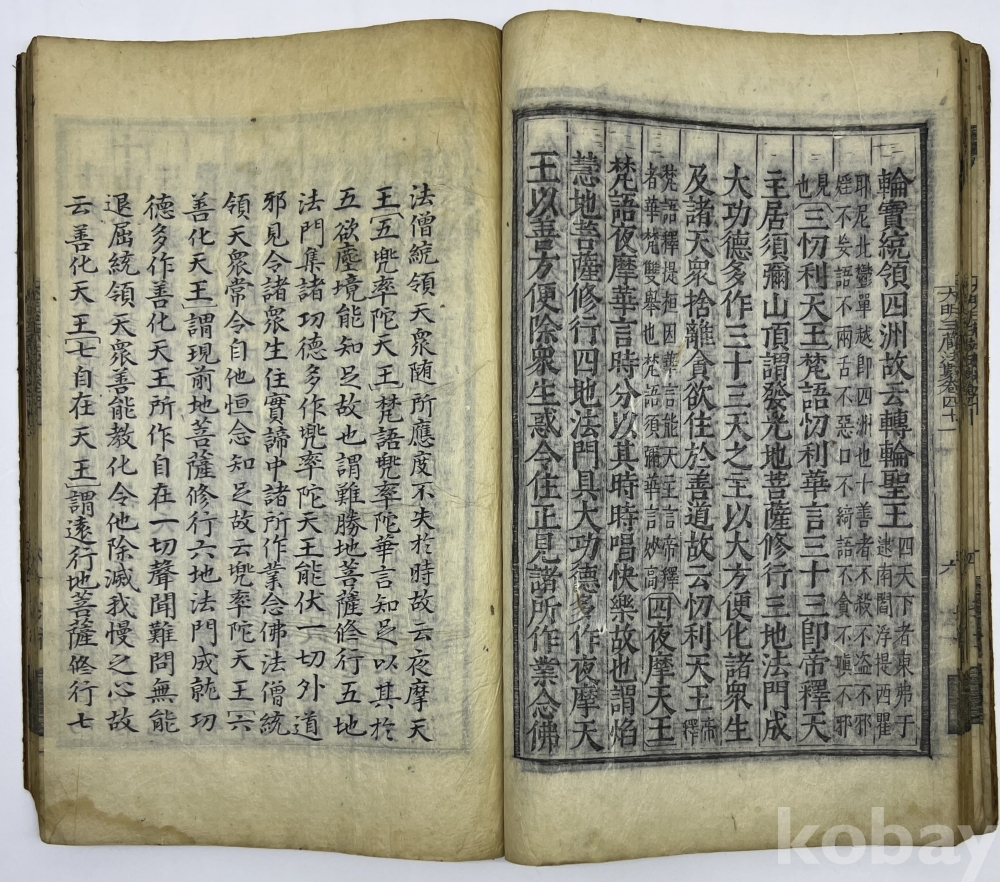 輪寶統領四洲故云轉輪聖王四天下者東弗于逮南閻浮提西瞿
耶尼北鬱單越即四洲也十善者不殺不盜不邪婬不妄語不兩舌不惡口不綺語不貪不瞋不邪
見也三忉利天王梵語忉利華言三十三即帝釋天
主居須彌山頂謂發光地菩薩修行三地法門成
大功德多作三十三天之主以大方便化諸衆生
及諸天衆捨離貪欲住於善道故云忉利天王帝釋
梵語釋提桓因華言能天主言帝釋者華梵雙舉也梵語須彌華言妙高四夜摩天王
梵語夜摩華言時分以其時時唱快樂故也謂焰
慧地菩薩修行四地法門具大功德多作夜摩天
王以善方便除衆生惑令住正見諸所作業念佛
法僧統領天衆随所應度不失於時故云夜摩天
王五兜率陀天王梵語兜率陀華言知足以其於
五欲塵境能知足故也謂難勝地菩薩修行五地
法門集諸功德多作兜率陀天王能伏一切外道
邪見令諸衆生住實諦中諸所作業念佛法僧統
領天衆常令自他恒念知足故云兜率陀天王六
善化天王謂現前地菩薩修行六地法門成就功
德多作善化天王所作自在一切聲聞難問無能
退屈統領天衆善能教化令他除滅我慢之心故
云善化天王七自在天王謂遠行地菩薩修行七
大明三藏法數卷四十
kobay